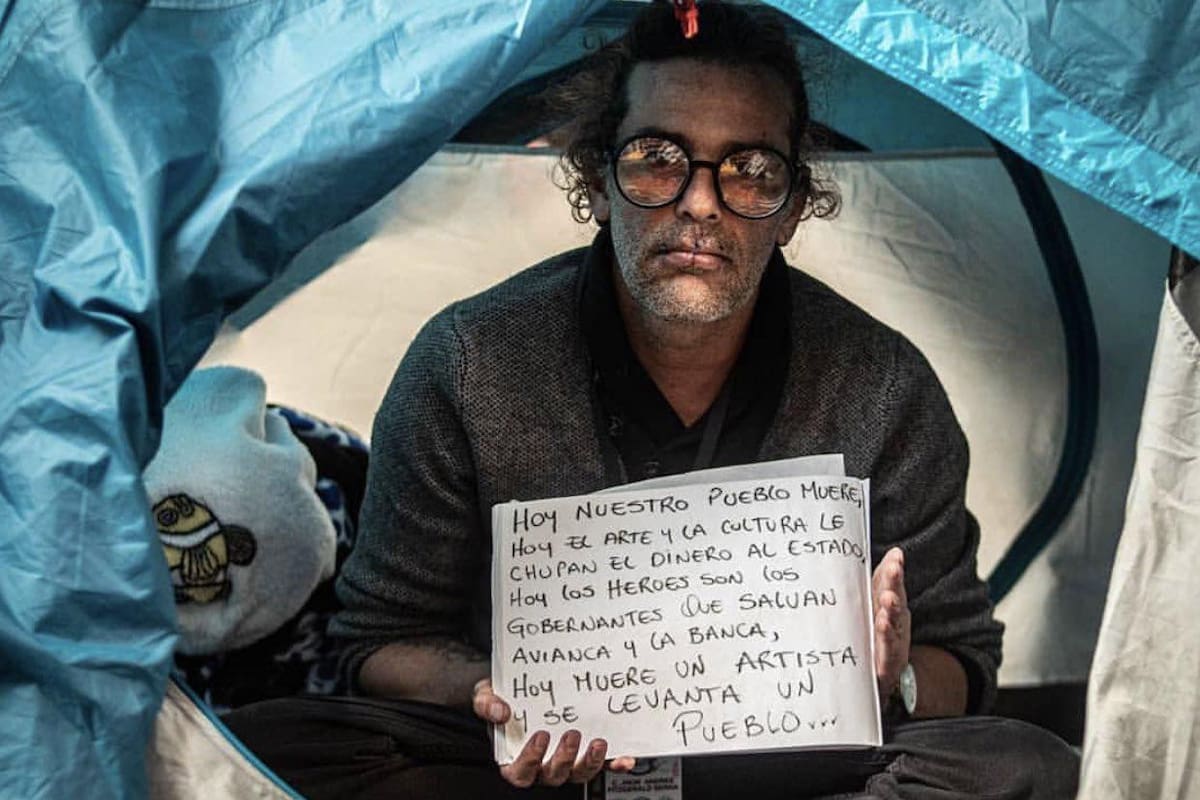 HOY NUESTRO PUEBLO MUERE,
HOY EL ARTE Y LA CULTURA LE
CHUPAN EL DINERO AL ESTADO,
HOY LOS HEROES SON LOS
GOBERNANTES QUE SALVAN
AVIANCA Y LA BANCA,
HOY MUERE UN ARTISTA
Y SE LEVANTA UN
PUEBLO...